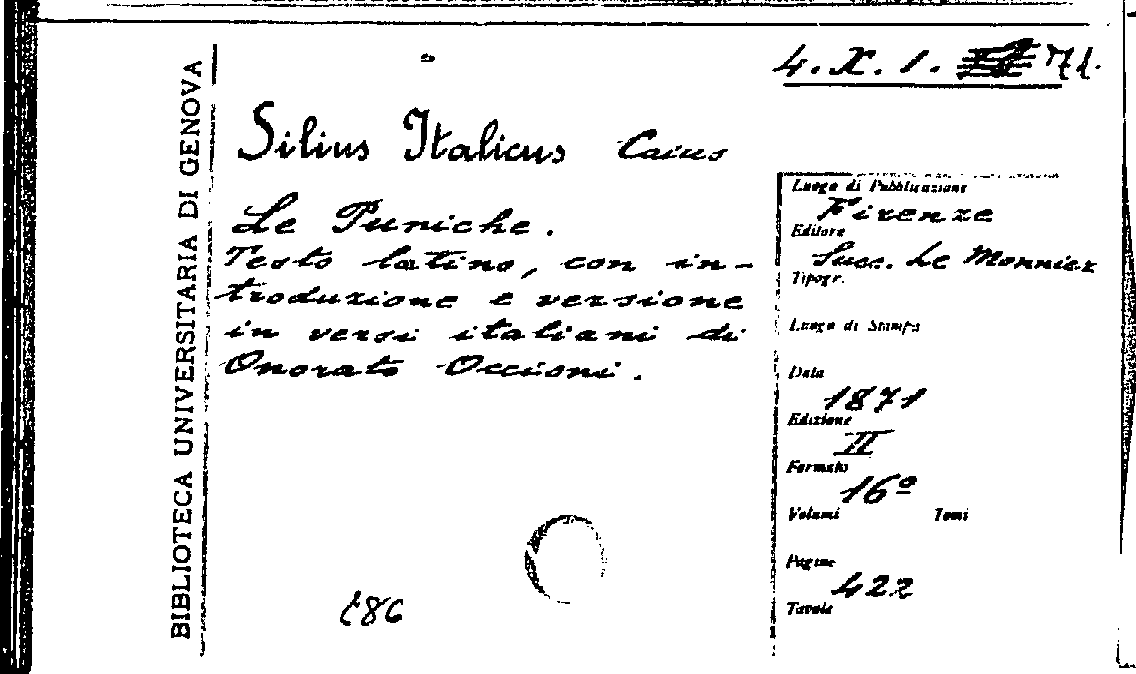 4. X. 1. 71.
BIBLIOTECA UNIVERSITARIA DI GENOVA
Silius Italicus Caius
Le Puniche.
Testo latino, con in-
troduzione e versione
in versi italiani di
Onorato Occioni.
Luogo di Pubblicazione
Firenze
Editore
Succ. Le Monnier
Tipogr.
Luogo di Stampa
Data
1871
Edizione
II
Formato
16º
Volumi Tomi
Pagine
422
Tavole